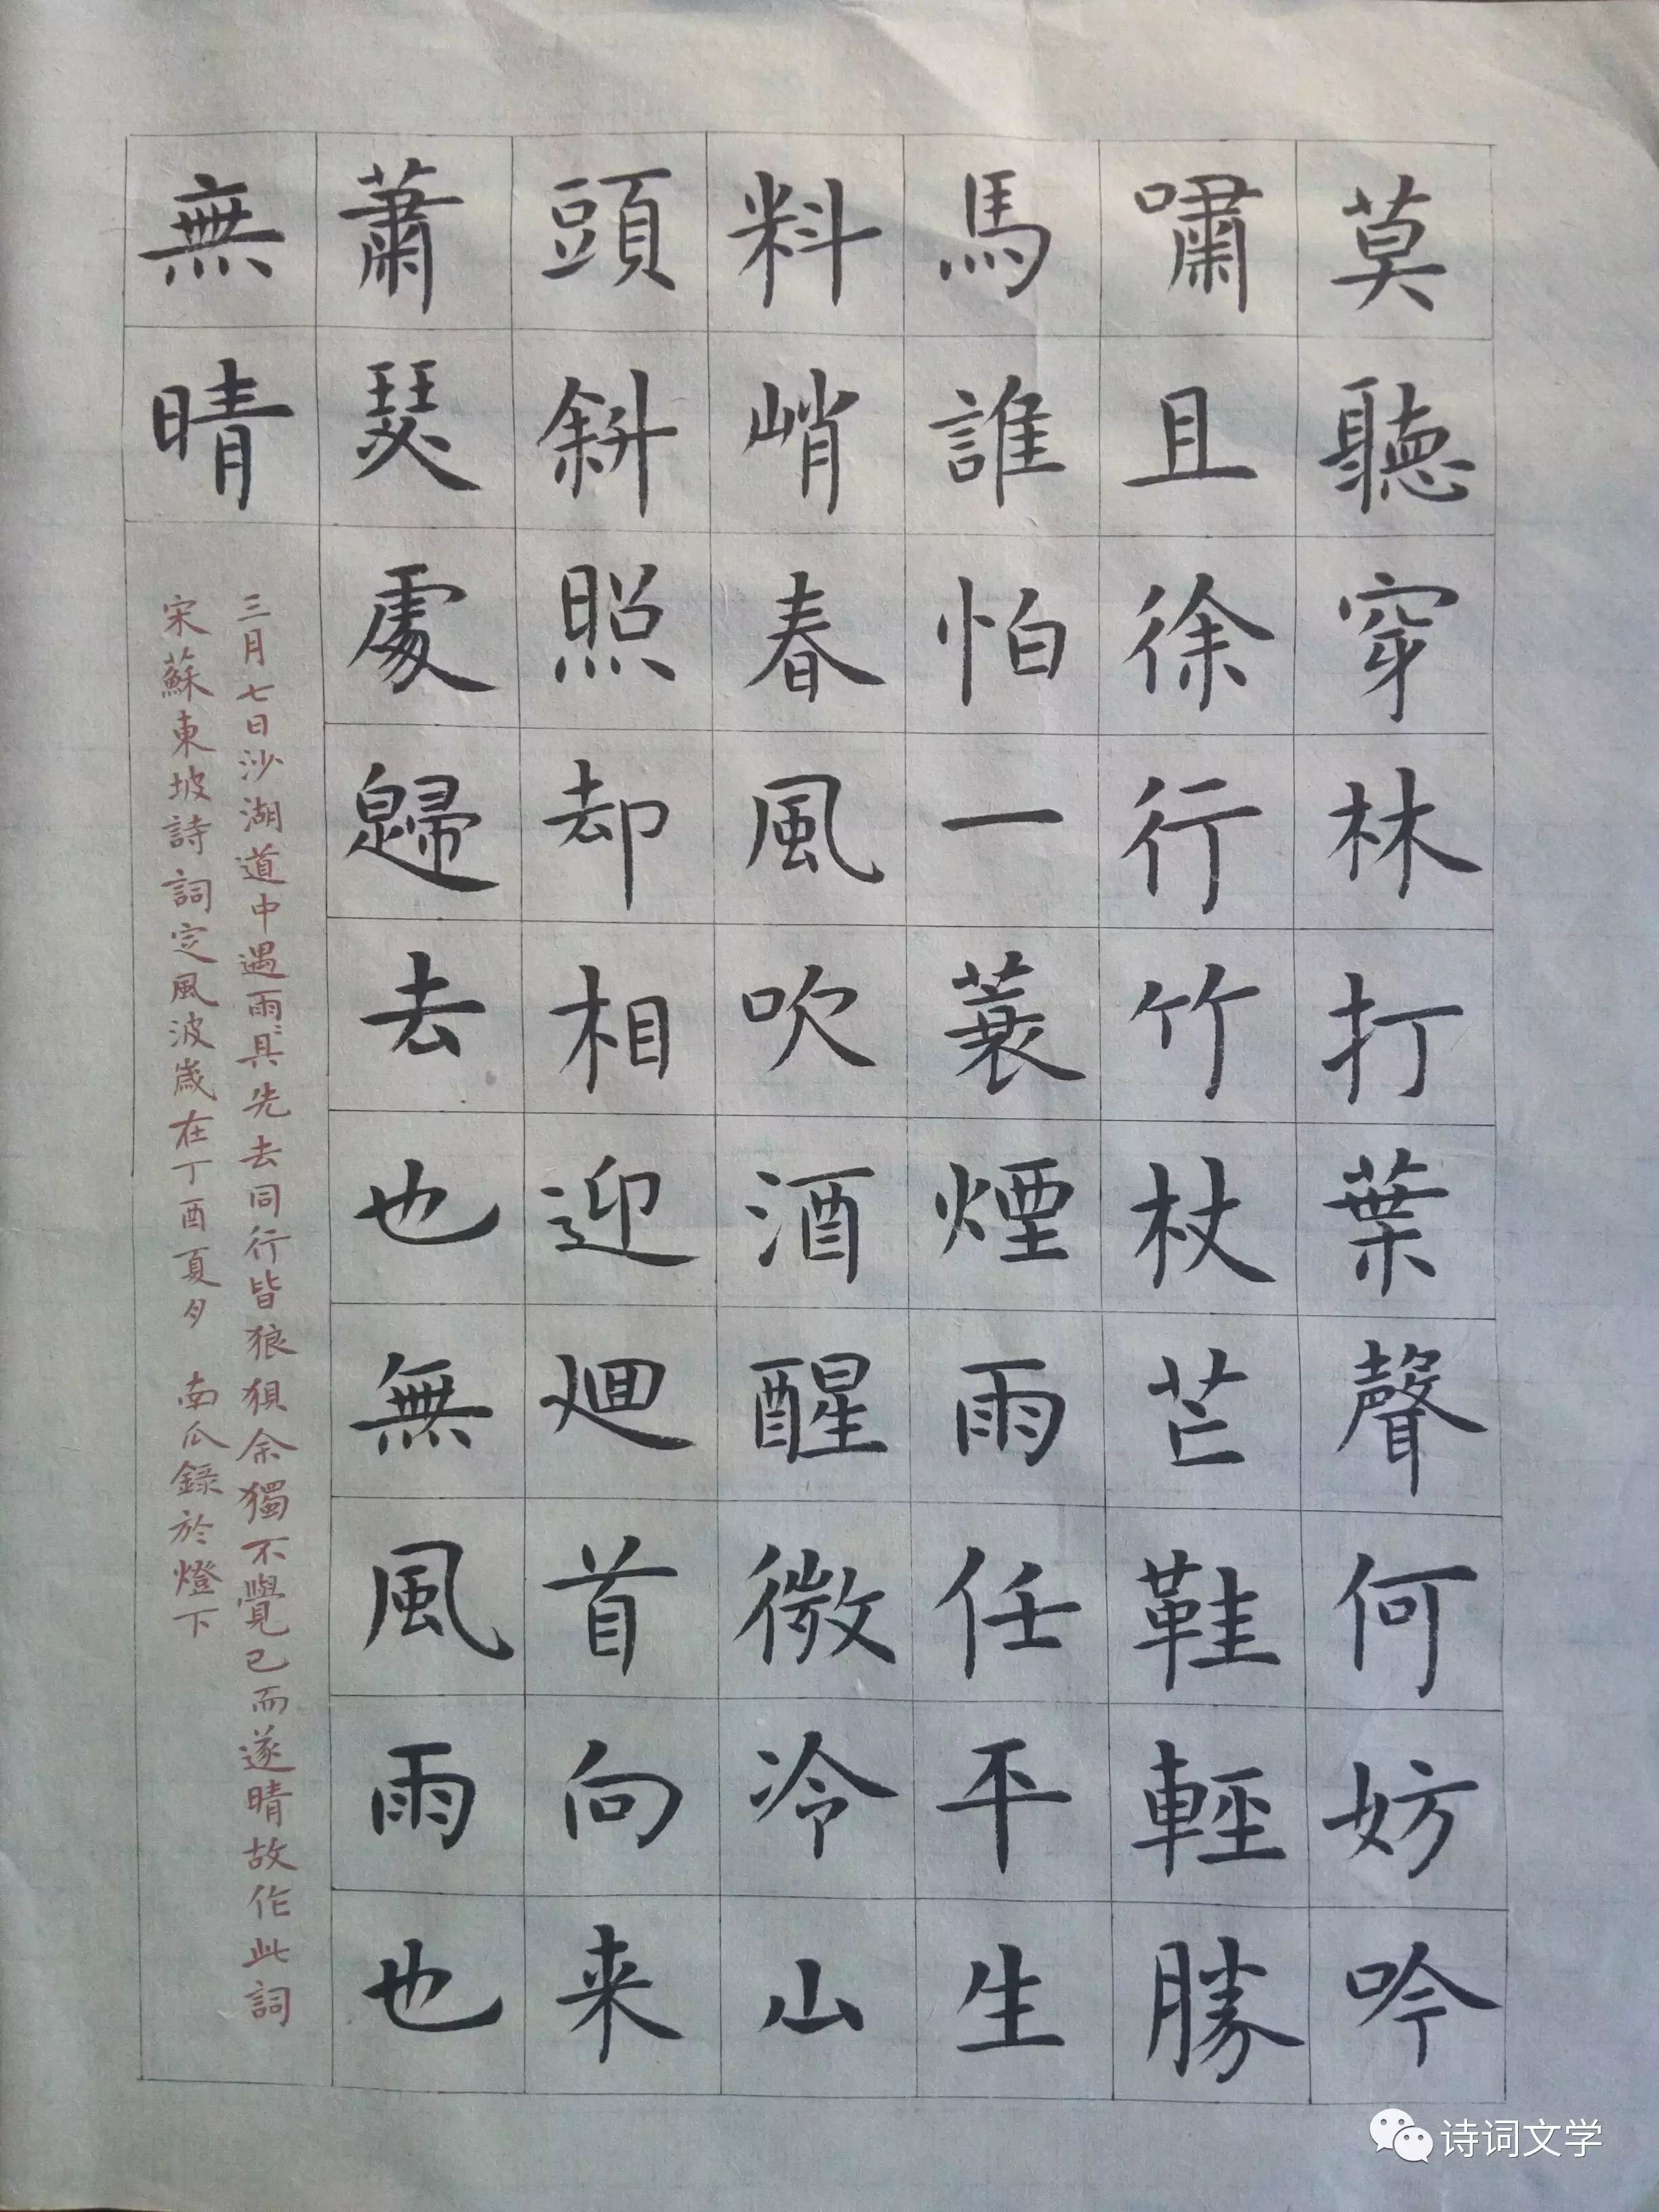 莫聽穿林打葉聲何妨吟
嘯且徐行竹杖芒鞋輕勝
馬誰怕一蓑煙雨任平生
料峭春風吹酒醒微冷山
頭斜照却相迎迴首向来
蕭瑟處歸去也無風雨也
無晴
三月七日沙湖道中遇雨〻具先去同行皆狼狽余獨不覺已而遂晴故作此詞
宋蘇東坡詩詞定風波歲在丁酉夏夕 南瓜錄於燈下
诗词文学